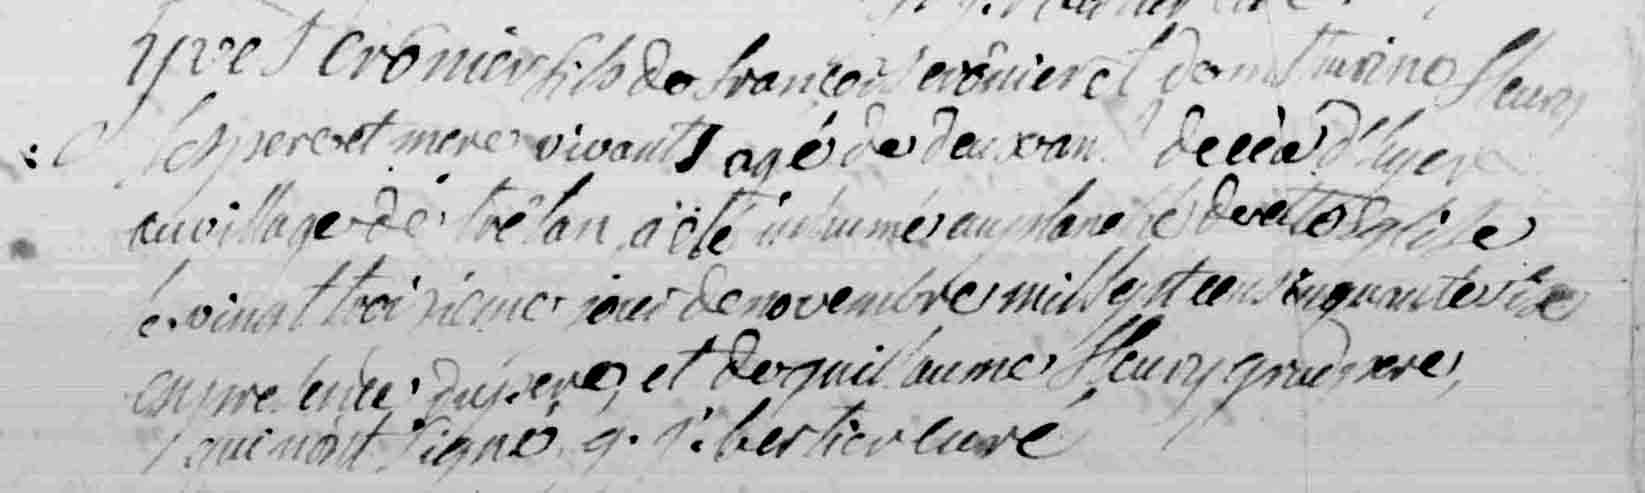 yves cronier fils de francois cronier et de mathurine fleury
ses pere et mere vivants agé de deux ans decedé d'hyer
au village de trélan a été inhumé au placitre de cette église
le vingt troisieme jour de novembre mil sept cens cinquante six
en presence du pere, et de guillaume fleury grand pere,
qui n'ont signé. curé